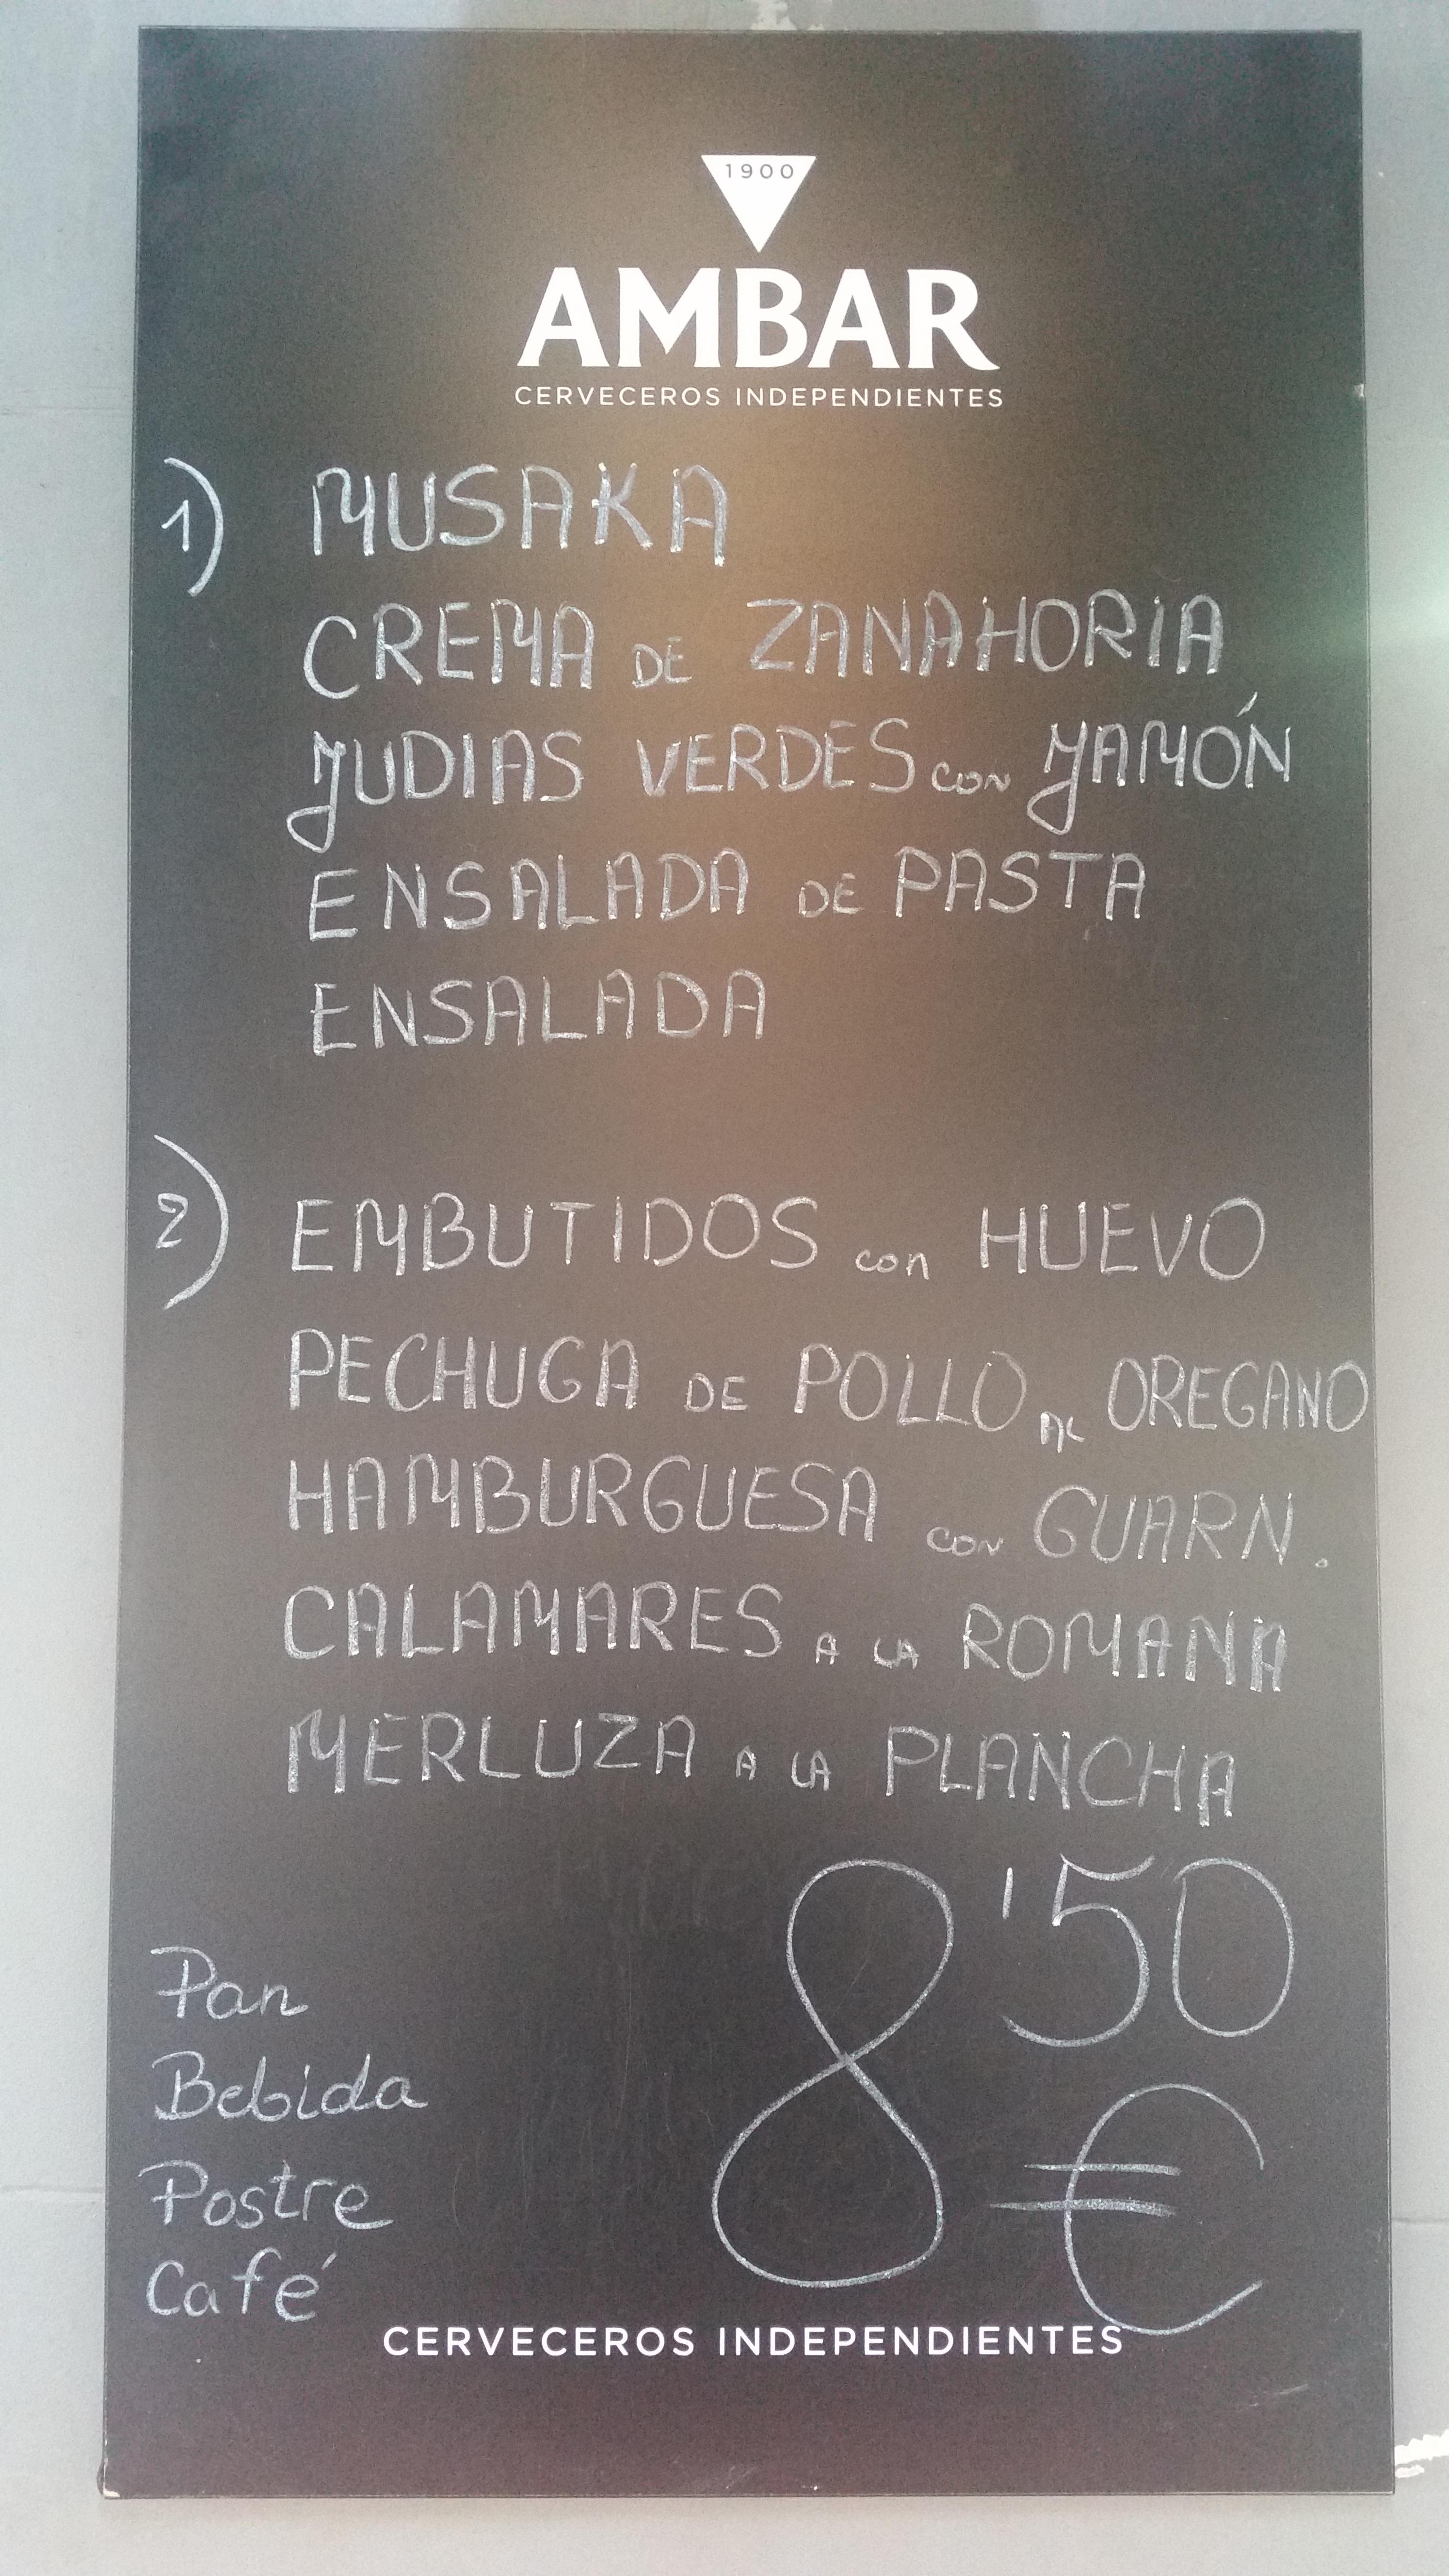 1900
AMBAR
CERVECEROS INDEPENDIENTES
1) MUSAKA
CREMA DE ZANAHORIA
JUDIAS VERDES con JAMÓN
ENSALADA DE PASTA
ENSALADA
2) EMBUTIDOS con HUEVO
PECHUGA DE POLLO AL OREGANO
HAMBURGUESA con GUARN.
CALAMARES A LA ROMANA
MERLUZA A LA PLANCHA
8'50 €
Pan
Bebida
Postre
Café
CERVECEROS INDEPENDIENTES